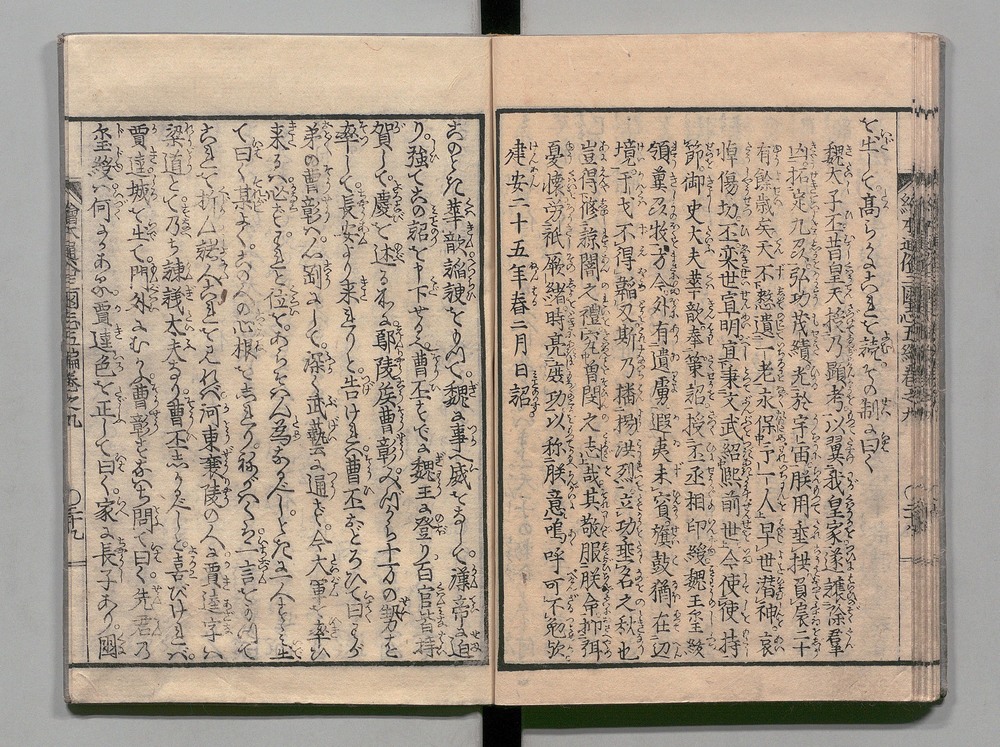 を出して高らかにこれを読その制に曰く
魏太子丕昔皇天授乃顕考以翼我皇家遂攘除羣
凶拓定九州弘功茂績光於宇宙朕用垂拱負扆二十
有餘載矣天不憖遺一老永保予一人早世潜神哀
悼傷切丕奕世宣明宜秉文武紹熙前世今使使持
節御史大夫華歆奉策詔授丕丞相印綬魏王璽紱
領冀州牧方今外有遺虜遐夷未賓旗鼓猶在辺
境干戈不得韜刃斯乃播揚洪烈立功垂名之秋也
豈得修諒闇之禮究曽閔之志哉其敬服朕命抑弭
憂懐旁祗厥緒時亮庶功以称朕意嗚呼可不勉歟
建安二十五年春二月日詔
このとき華歆諂諛をもつて魏に事へ威をなして漢帝に迫
り強てこの詔を申下せるなり曹丕すでに魏王に登り百官皆拝
賀して慶を述るに鄢陵侯曹彰みづから十万の勢を
率して長安より来れりと告けれバ曹丕おどろひて曰くわが
弟の曹彰ハ心剛にして深く武藝に通ず今大軍を率ひ
来るハ必ずわれと位をあらそハん為なるべし一人すゝみ出
て曰く某よくこの人の心根をしれり一言をもつて
これを折ん諸人これを見れバ河東襄陵の人に賈逵字ハ
梁道とて乃ち諌議太夫なり曹丕喜びけれバ
賈逵城を出て門外にむかふ曹彰すなハち問て曰く先君乃
璽綬ハ何にかあるや賈逵色を正して曰く家に長子あり国
繪本通俗三國志五編巻之九
〇二十九